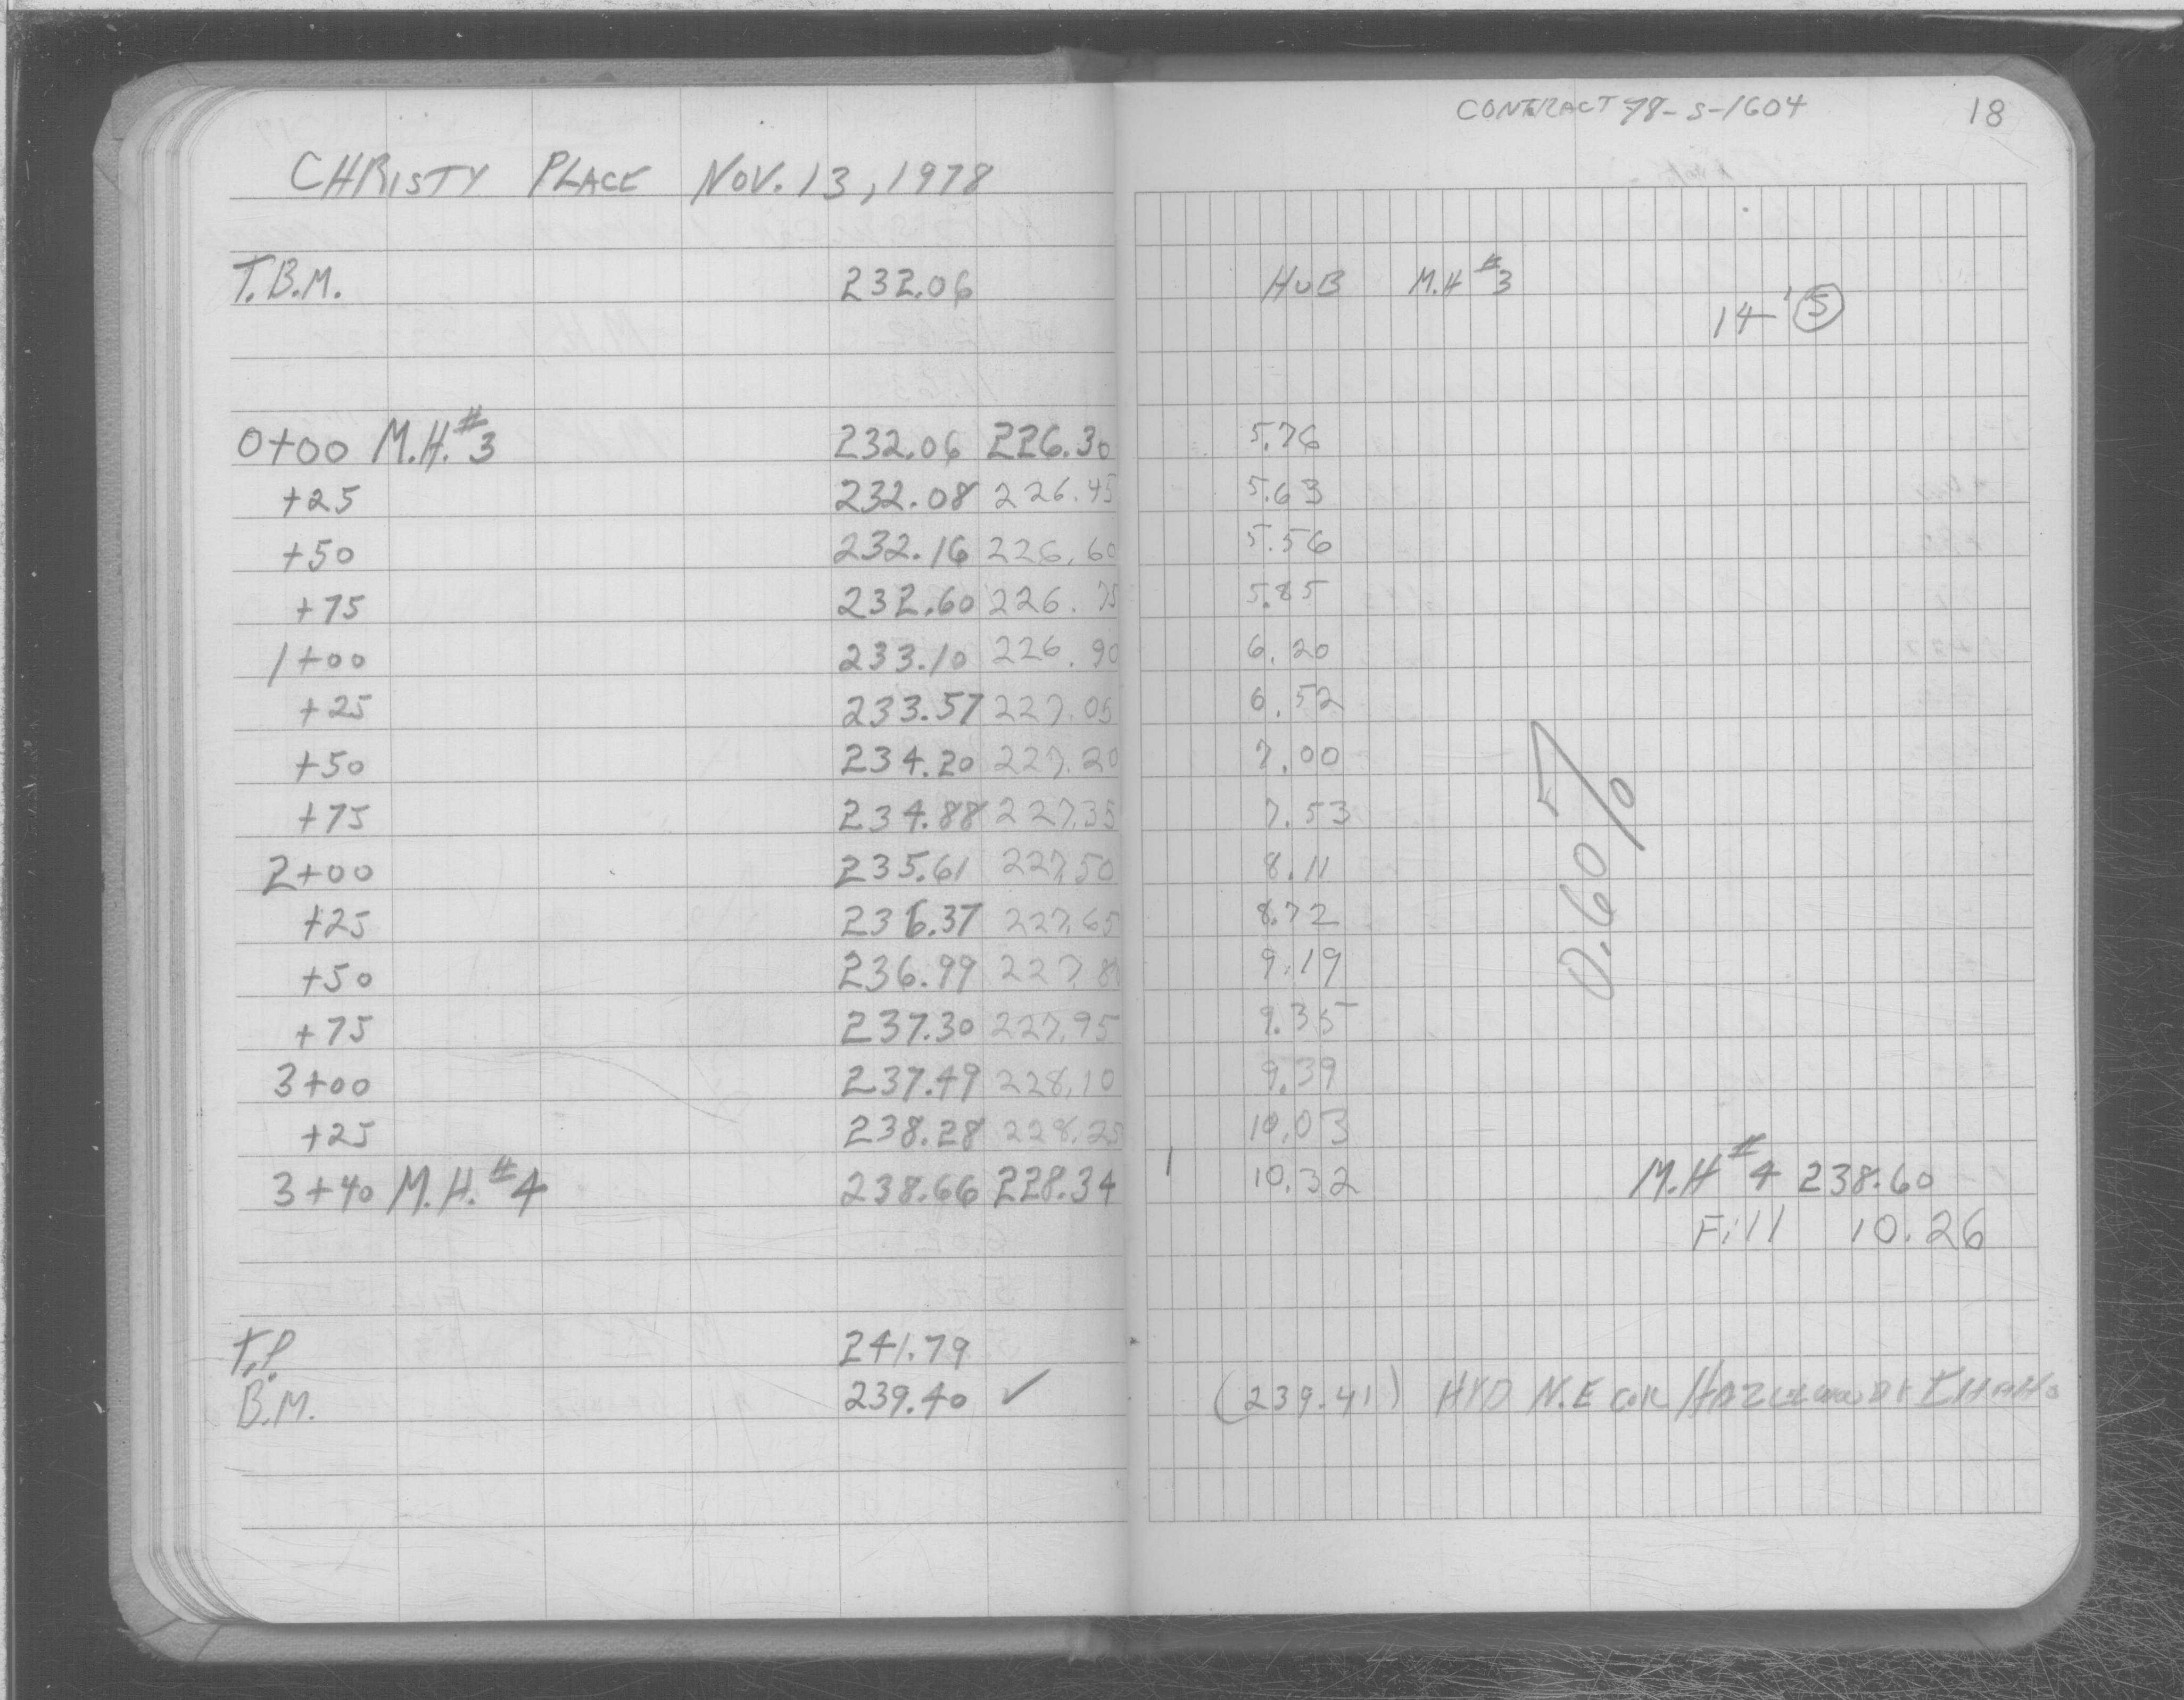 CHRISTY PLACE NOV. 13, 1978
T.B.M. 232.06
0+00 M.H.#3 232.06 226.30
+25 232.08 226.45
+50 232.16 226.60
+75 232.60 226.75
1+00 233.10 226.90
+25 233.57 227.05
+50 234.20 227.20
+75 234.88 227.35
2+00 235.61 227.50
+25 236.37 227.65
+50 236.99 227.8
+75 237.30 227.95
3+00 237.49 228.10
+25 238.28 228.25
3+40 M.H.#4 238.66 228.34
T.P. 241.79
B.M. 239.40 ✓
CONTRACT 78-S-1604 18
HUB M.H #3
14' S
5.76
5.63
5.56
5.85
6.20
6.52
7.00
7.53
8.11
8.72
9.19
9.35
9.39
10.03
10.32
0.60%
M.H #4 238.60
Fill 10.26
(239.41) HYD N.E COR